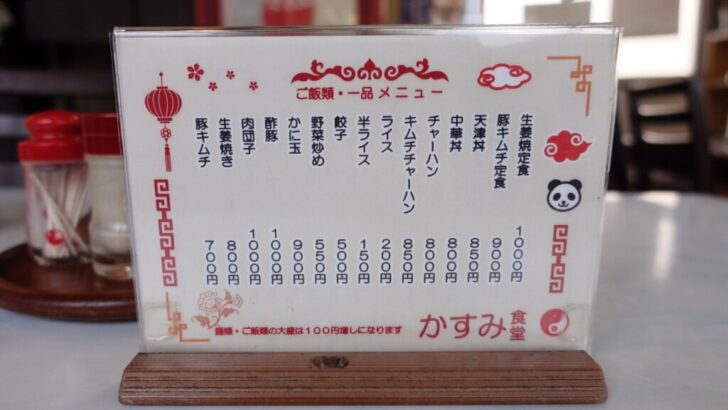 ご飯類・一品 メニュー
生姜焼定食 1000円
豚キムチ定食 900円
天津丼 850円
中華丼 800円
チャーハン 800円
キムチチャーハン 850円
ライス 200円
半ライス 150円
餃子 500円
野菜炒め 550円
かに玉 900円
酢豚 1000円
肉団子 1000円
生姜焼き 800円
豚キムチ 700円
麺類・ご飯類の大盛は100円増しになります
かすみ食堂